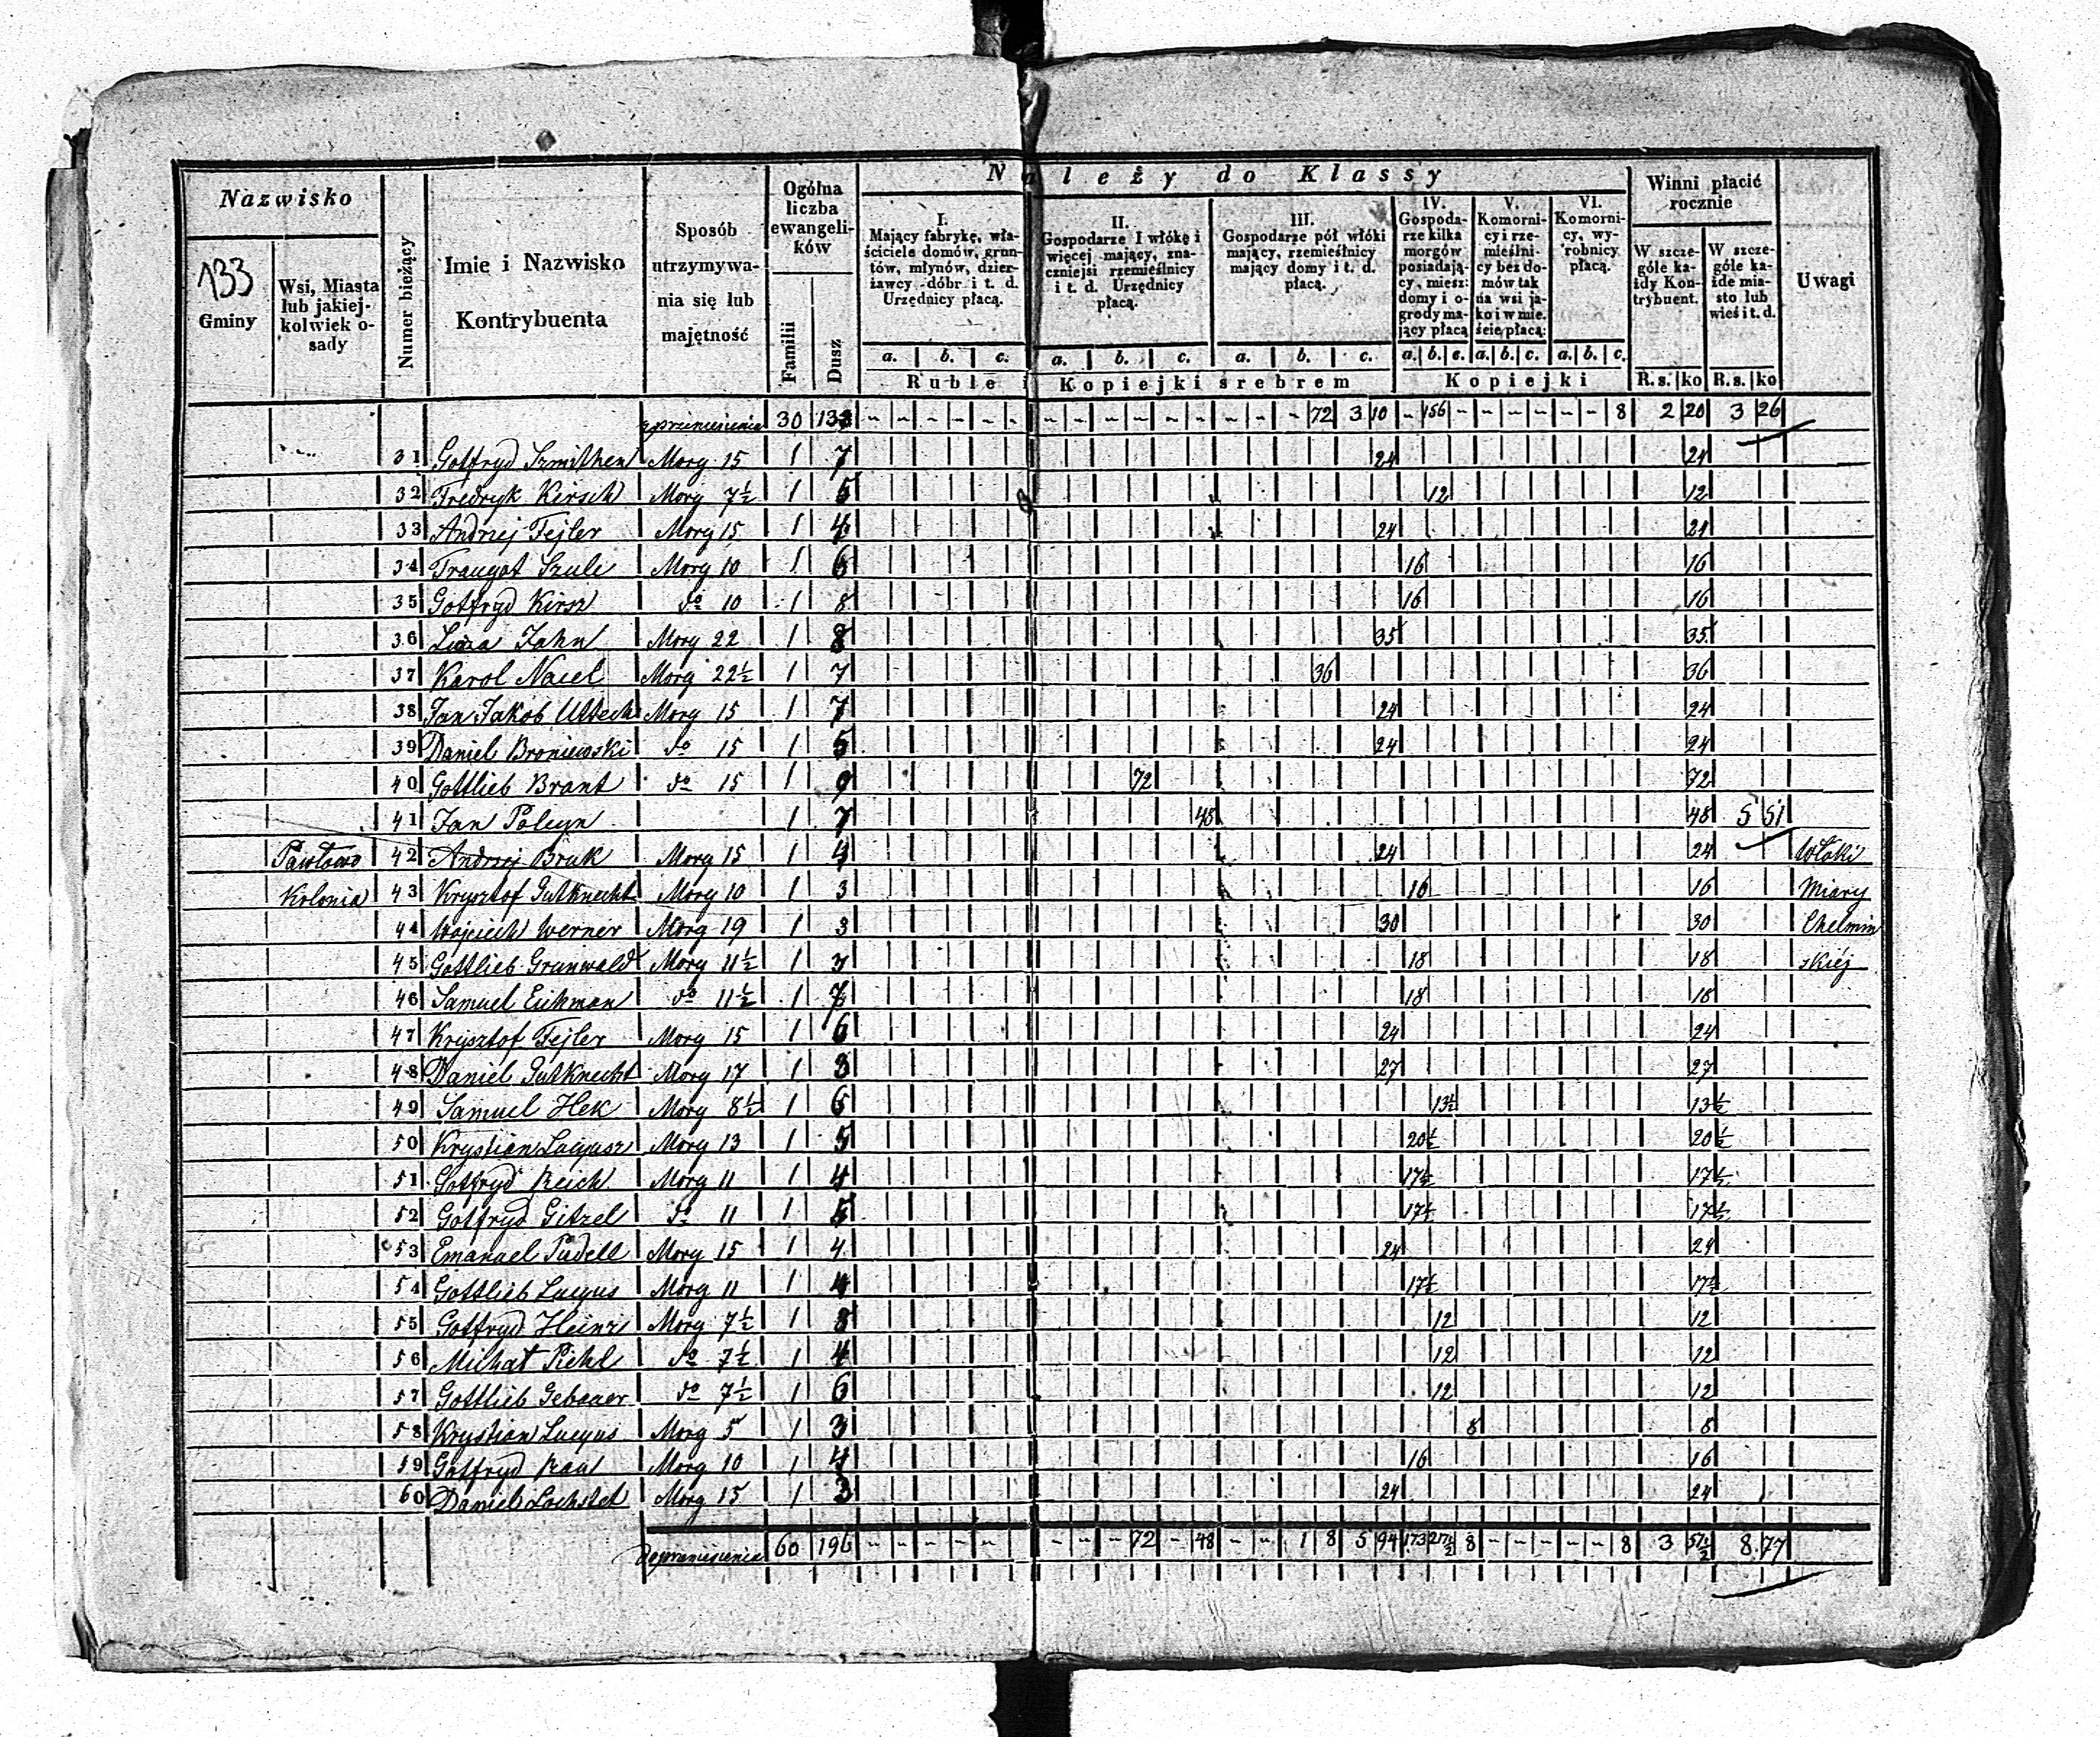 Nazwisko
133
Gminy
Wsi, Miasta
lub jakiej-
kolwiek o-
sady
Numer bieżący
Imie i Nazwisko
Kontrybuenta
Sposób
utrzymywa-
nia się lub
majętność
Ogólna
liczba
ewangeli-
ków
Familii
Dusz
Należy do Klassy
I.
Mający fabrykę, wła-
ściciele domów, grun-
tów, młynów, dzier-
żawcy dóbr i t. d.
Urzędnicy płacą.
II.
Gospodarze I włókę i
więcej mający, zna-
czniejsi rzemieślnicy
i t. d. Urzędnicy
płacą.
III.
Gospodarze pół włóki
mający, rzemieślnicy
mający domy i t. d.
płacą.
IV.
Gospoda-
rze kilka
morgów
posiadają-
cy, miesz:
domy i o-
grody ma-
jący płacą
V.
Komorni-
cy i rze-
mieślni-
cy bez do-
mów tak
na wsi ja-
ko i w mie.
ście płacą:
VI.
Komorni-
cy, wy-
robnicy
płacą.
Winni płacić
rocznie
W szcze-
góle ka-
żdy Kon-
trybuent.
W szcze-
góle ka-
żde mia-
sto lub
wieś i t. d.
Uwagi
a. b. c. a. b. c. a. b. c. a. b. c. a. b. c. a. b. c.
Ruble i Kopiejki srebrem Kopiejki R.s. ko R.s. ko
z przeniesienia 30 133 72 3 10 156 8 2 20 3 26
31 Gotfryd Szmithen Morg 15 1 7 24 24
32 Fredryk Kirsch Morg 7½ 1 5 12 12
33 Andrzej Fejler Morg 15 1 4 24 24
34 Traugot Szulc Morg 10 1 6 16 16
35 Gotfryd Kirsz do 10 1 8 16 16
36 Jahn Morg 22 1 8 35 35
37 Karol Nacel Morg 22½ 1 7 36 36
38 Jan Jakob Uttech Morg 15 1 7 24 24
39 Daniel Broniewski do 15 1 5 24 24
40 Gottlieb Brant do 15 1 9 72 72
41 Jan Polcyn 1 7 48 48 5 51
Pawłowo 42 Andrzej Bruk Morg 15 1 4 24 24 Włóki
Kolonia 43 Krysztof Gutknecht Morg 10 1 3 16 16 Miary
44 Wojciech Werner Morg 19 1 3 30 30 Chełmiń
45 Gottlieb Grunwald Morg 11½ 1 3 18 18 skiéj
46 Samuel Eichman do 11½ 1 7 18 18
47 Krysztof Fejler Morg 15 1 6 24 24
48 Daniel Gutknecht Morg 17 1 3 27 27
49 Samuel Hek Morg 8½ 1 6 13½ 13½
50 Krystian Morg 13 1 5 20½ 20½
51 Gotfryd Reich Morg 11 1 4 17½ 17½
52 Gotfryd Gitzel do 11 1 5 17½ 17½
53 Emanuel Pudell Morg 15 1 4 24 24
54 Gottlieb Lucyus Morg 11 1 4 17½ 17½
55 Gotfryd Heinz Morg 7½ 1 8 12 12
56 Michał Piehl do 7½ 1 4 12 12
57 Gottlieb Gebauer do 7½ 1 6 12 12
58 Krystian Lucyus Morg 5 1 3 8 8
59 Gotfryd Rau Morg 10 1 4 16 16
60 Daniel Lochstet Morg 15 1 3 24 24
Do przeniesienia 60 196 72 48 1 8 5 94 173 217½ 8 8 3 51½ 8 77